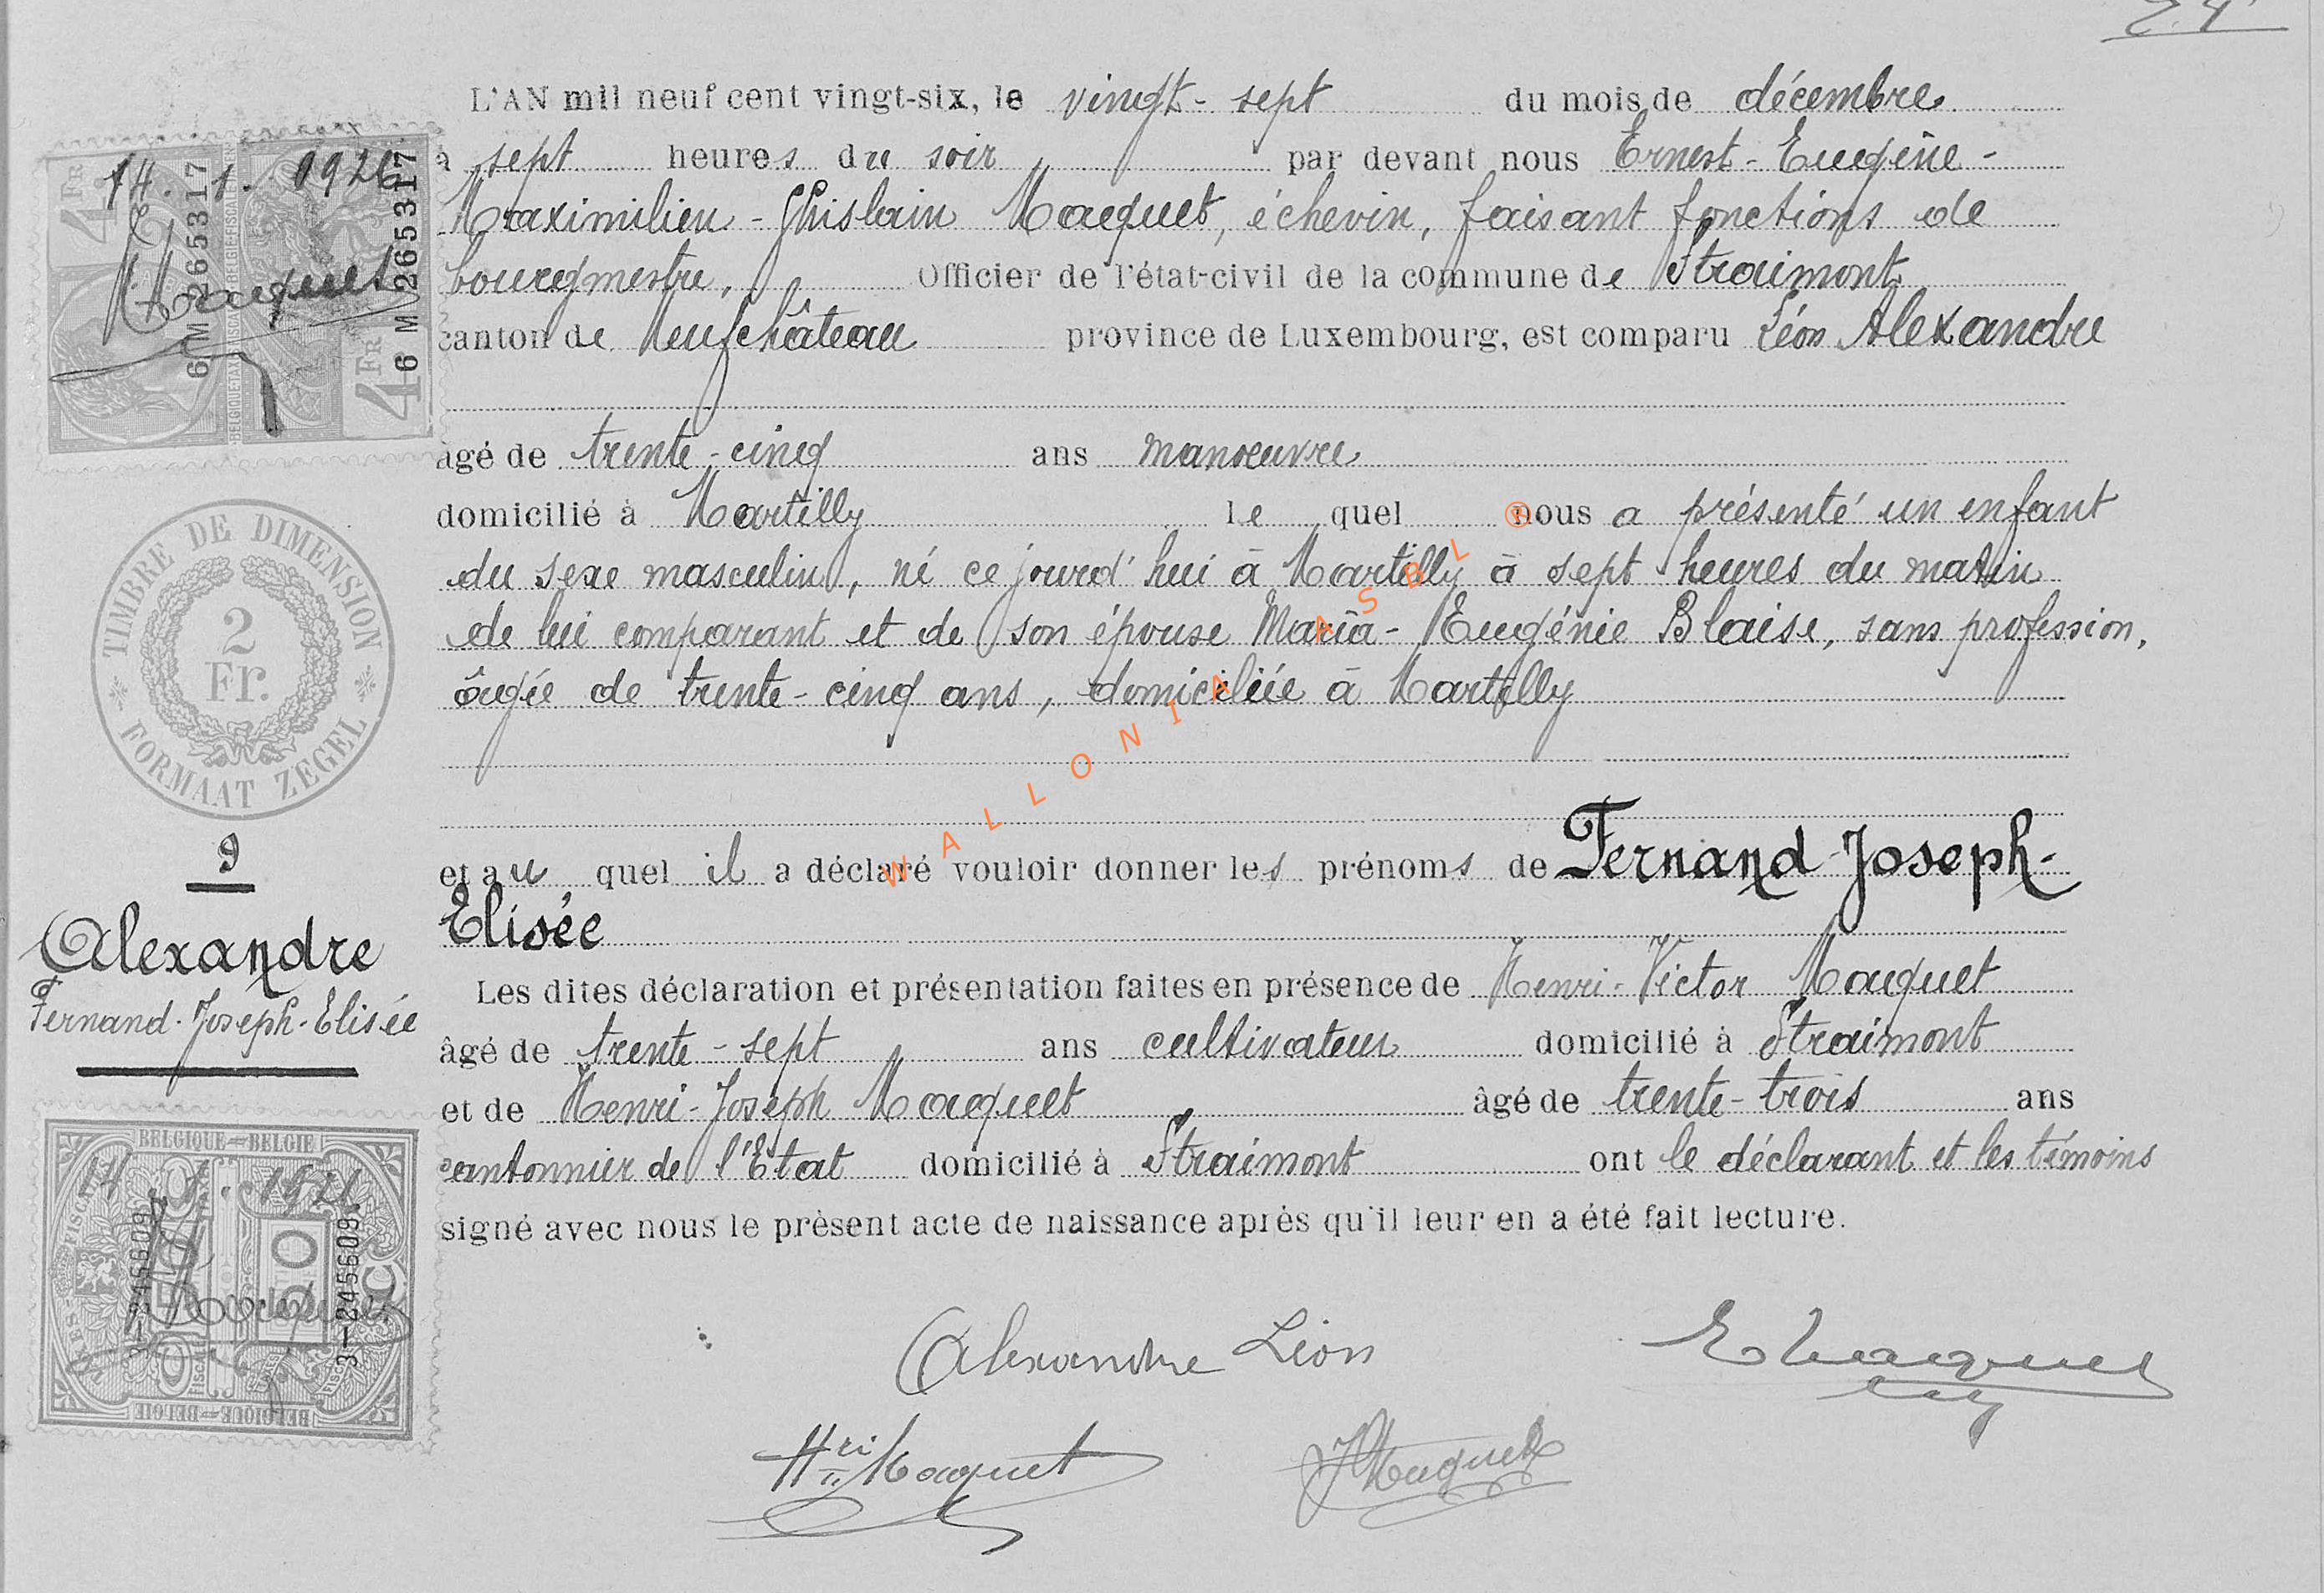 24
L'AN mil neuf cent vingt-six, le vingt-sept du mois de décembre
à sept heures du soir par devant nous Ernest-Eugène-
Maximilien-Ghislain Maquet, échevin, faisant fonctions de
bourgmestre, Officier de l'état-civil de la commune de Straimont
canton de Neufchâteau province de Luxembourg, est comparu Léon Alexandre
âgé de trente-cinq ans manœuvre
domicilié à Martilly le quel nous a présenté un enfant
du sexe masculin, né ce jourd'hui à Martilly à sept heures du matin
de lui comparant et de son épouse Maria-Eugénie Blaise, sans profession,
âgée de trente-cinq ans, domiciliée à Martilly
et au quel il a déclaré vouloir donner les prénoms de Fernand-Joseph-
Elisée
Les dites déclaration et présentation faites en présence de Henri-Victor Maquet
âgé de trente-sept ans cultivateur domicilié à Straimont
et de Henri-Joseph Maquet âgé de trente-trois ans
cantonnier de l'Etat domicilié à Straimont ont le déclarant et les témoins
signé avec nous le présent acte de naissance après qu'il leur en a été fait lecture.
Alexandre Léon
E Maquet
Hri Maquet
JMaquet
14. 1. 1926
Maquet
4 FR
6 M 265317
4 FR
6 M 265317
TIMBRE DE DIMENSION
2
Fr.
FORMAAT ZEGEL
9
Alexandre
Fernand-Joseph-Elisée
BELGIQUE-BELGIE
14 1. 1926
Maquet
3-245609
BELGIQUE-BELGIE
WALLONIA ASBL ®